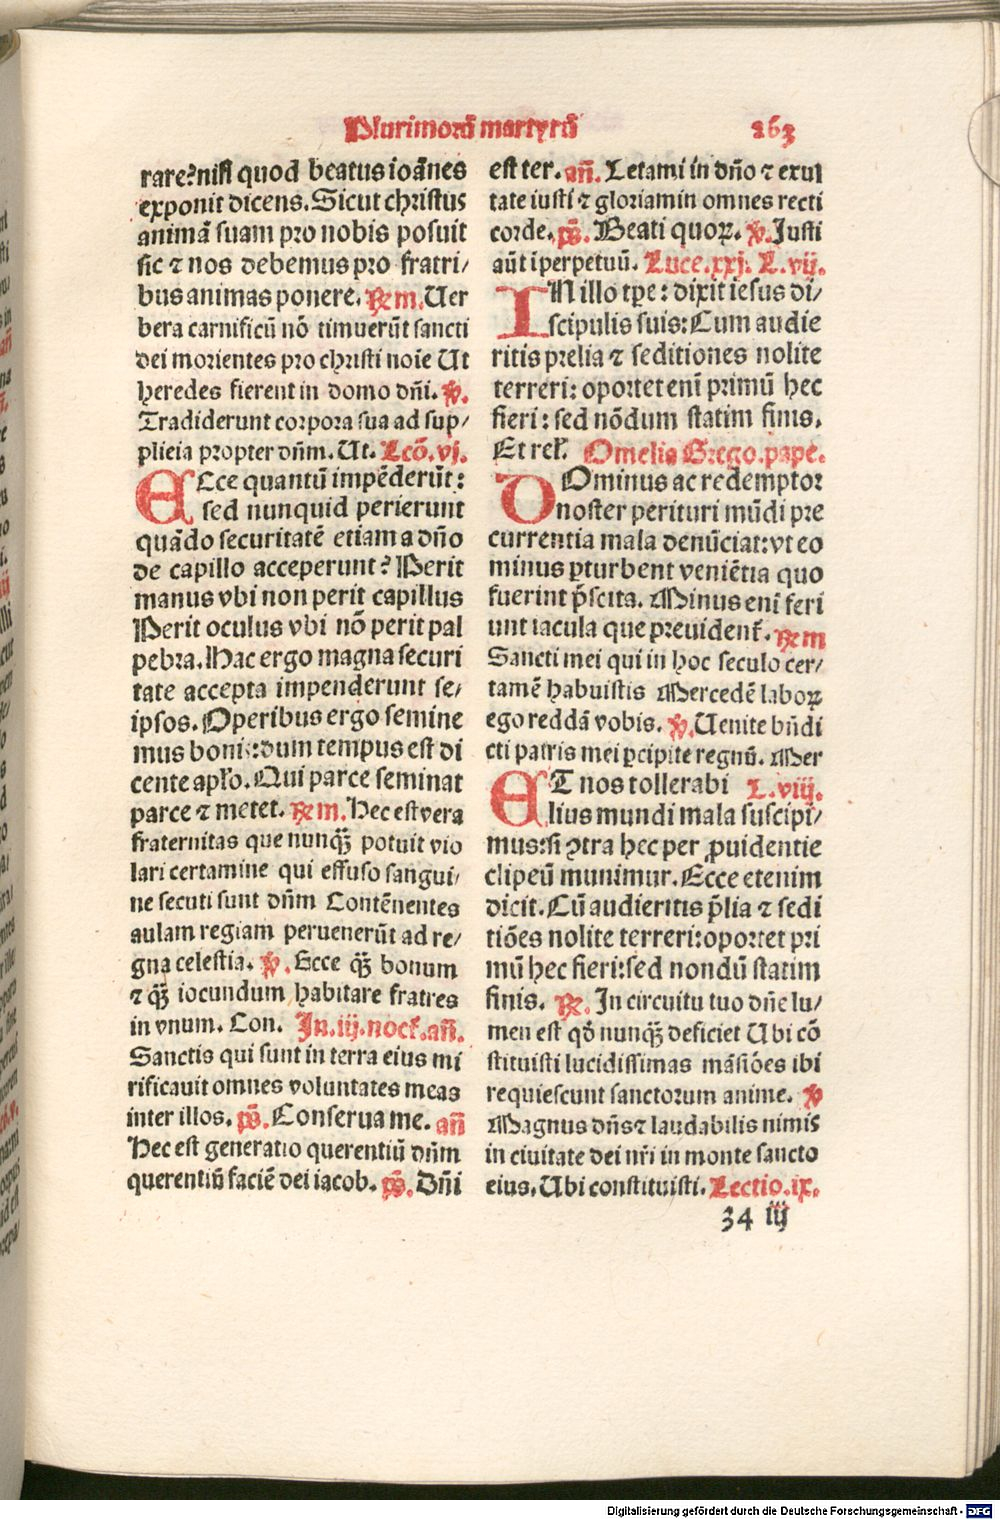 Plurimorū martyrū 263
rare?nisi quod beatus ioānes
exponit dicens. Sicut christus
animā suam pro nobis posuit
sic ⁊ nos debemus pro fratri/
bus animas ponere. ℞m. Uer
bera carnificū nō timuerūt sancti
dei morientes pro christi noīe Ut
heredes fierent in domo dn̄i. ℣.
Tradiderunt corpora sua ad sup/
plicia propter dn̄m. Ut. Lcō. vj.
ECce quantū impēderūt:
sed nunquid perierunt
quādo securitatē etiam a dn̄o
de capillo acceperunt? Perit
manus vbi non perit capillus
Perit oculus vbi nō perit pal
pebra. Hac ergo magna securi
tate accepta impenderunt se/
ipsos. Operibus ergo semine
mus bonis:dum tempus est di
cente apl'o. Qui parce seminat
parce ⁊ metet. ℞m. Hec est vera
fraternitas que nunqꝫ̄ potuit vio
lari certamine qui effuso sangui/
ne secuti sunt dn̄m Contēnentes
aulam regiam peruenerūt ad re/
gna celestia. ℣. Ecce qꝫ̄ bonum
⁊ qꝫ̄ iocundum habitare fratres
in vnum. Con. In. iij. noct̄. an̄.
Sanctis qui sunt in terra eius mi
rificauit omnes voluntates meas
inter illos. ps̄. Conserua me. an̄
Hec est generatio querentiū dn̄m
querentiū faciē dei iacob. ps̄. Dn̄i
est ter. an̄. Letami in dn̄o ⁊ exul
tate iusti ⁊ gloriamin omnes recti
corde. ps̄. Beati quoꝝ. ℣. Justi
aūt ī perpetuū. Luce. xxj. L. vij.
IN illo tꝑe: dixit iesus di/
scipulis suis: Cum audie
ritis prelia ⁊ seditiones nolite
terreri: oportet enī primū hec
fieri: sed nōdum statim finis.
Et rel'. Omelia Grego. pape.
DOminus ac redemptor
noster perituri mūdi pre
currentia mala denūciat: vt eo
minus ꝑturbent veniētia quo
fuerint p̄scita. Minus enī feri
unt iacula que preuident̄. ℞m
Sancti mei qui in hoc seculo cer/
tamē habuistis Mercedē laboꝝ
ego reddā vobis. ℣. Uenite bn̄di
cti patris mei ꝑcipite regnū. Mer
ET nos tollerabi L. viij.
lius mundi mala suscipi/
mus: si ↄtra hec per ꝓuidentie
clipeū munimur. Ecce etenim
dicit. Cū audieritis p̄lia ⁊ sedi
tiōes nolite terreri: oportet pri
mū hec fieri: sed nondū statim
finis. ℞. In circuitu tuo dn̄e lu/
men est qō nunqꝫ̄ deficiet Ubi cō
stituisti lucidissimas māsiōes ibi
requiescunt sanctorum anime. ℣
Magnus dn̄s ⁊ laudabilis nimis
in ciuitate dei nr̄i in monte sancto
eius. Ubi constituisti. Lectio. ix.
34 iij
Digitalisierung gefördert durch die Deutsche Forschungsgemeinschaft - DFG